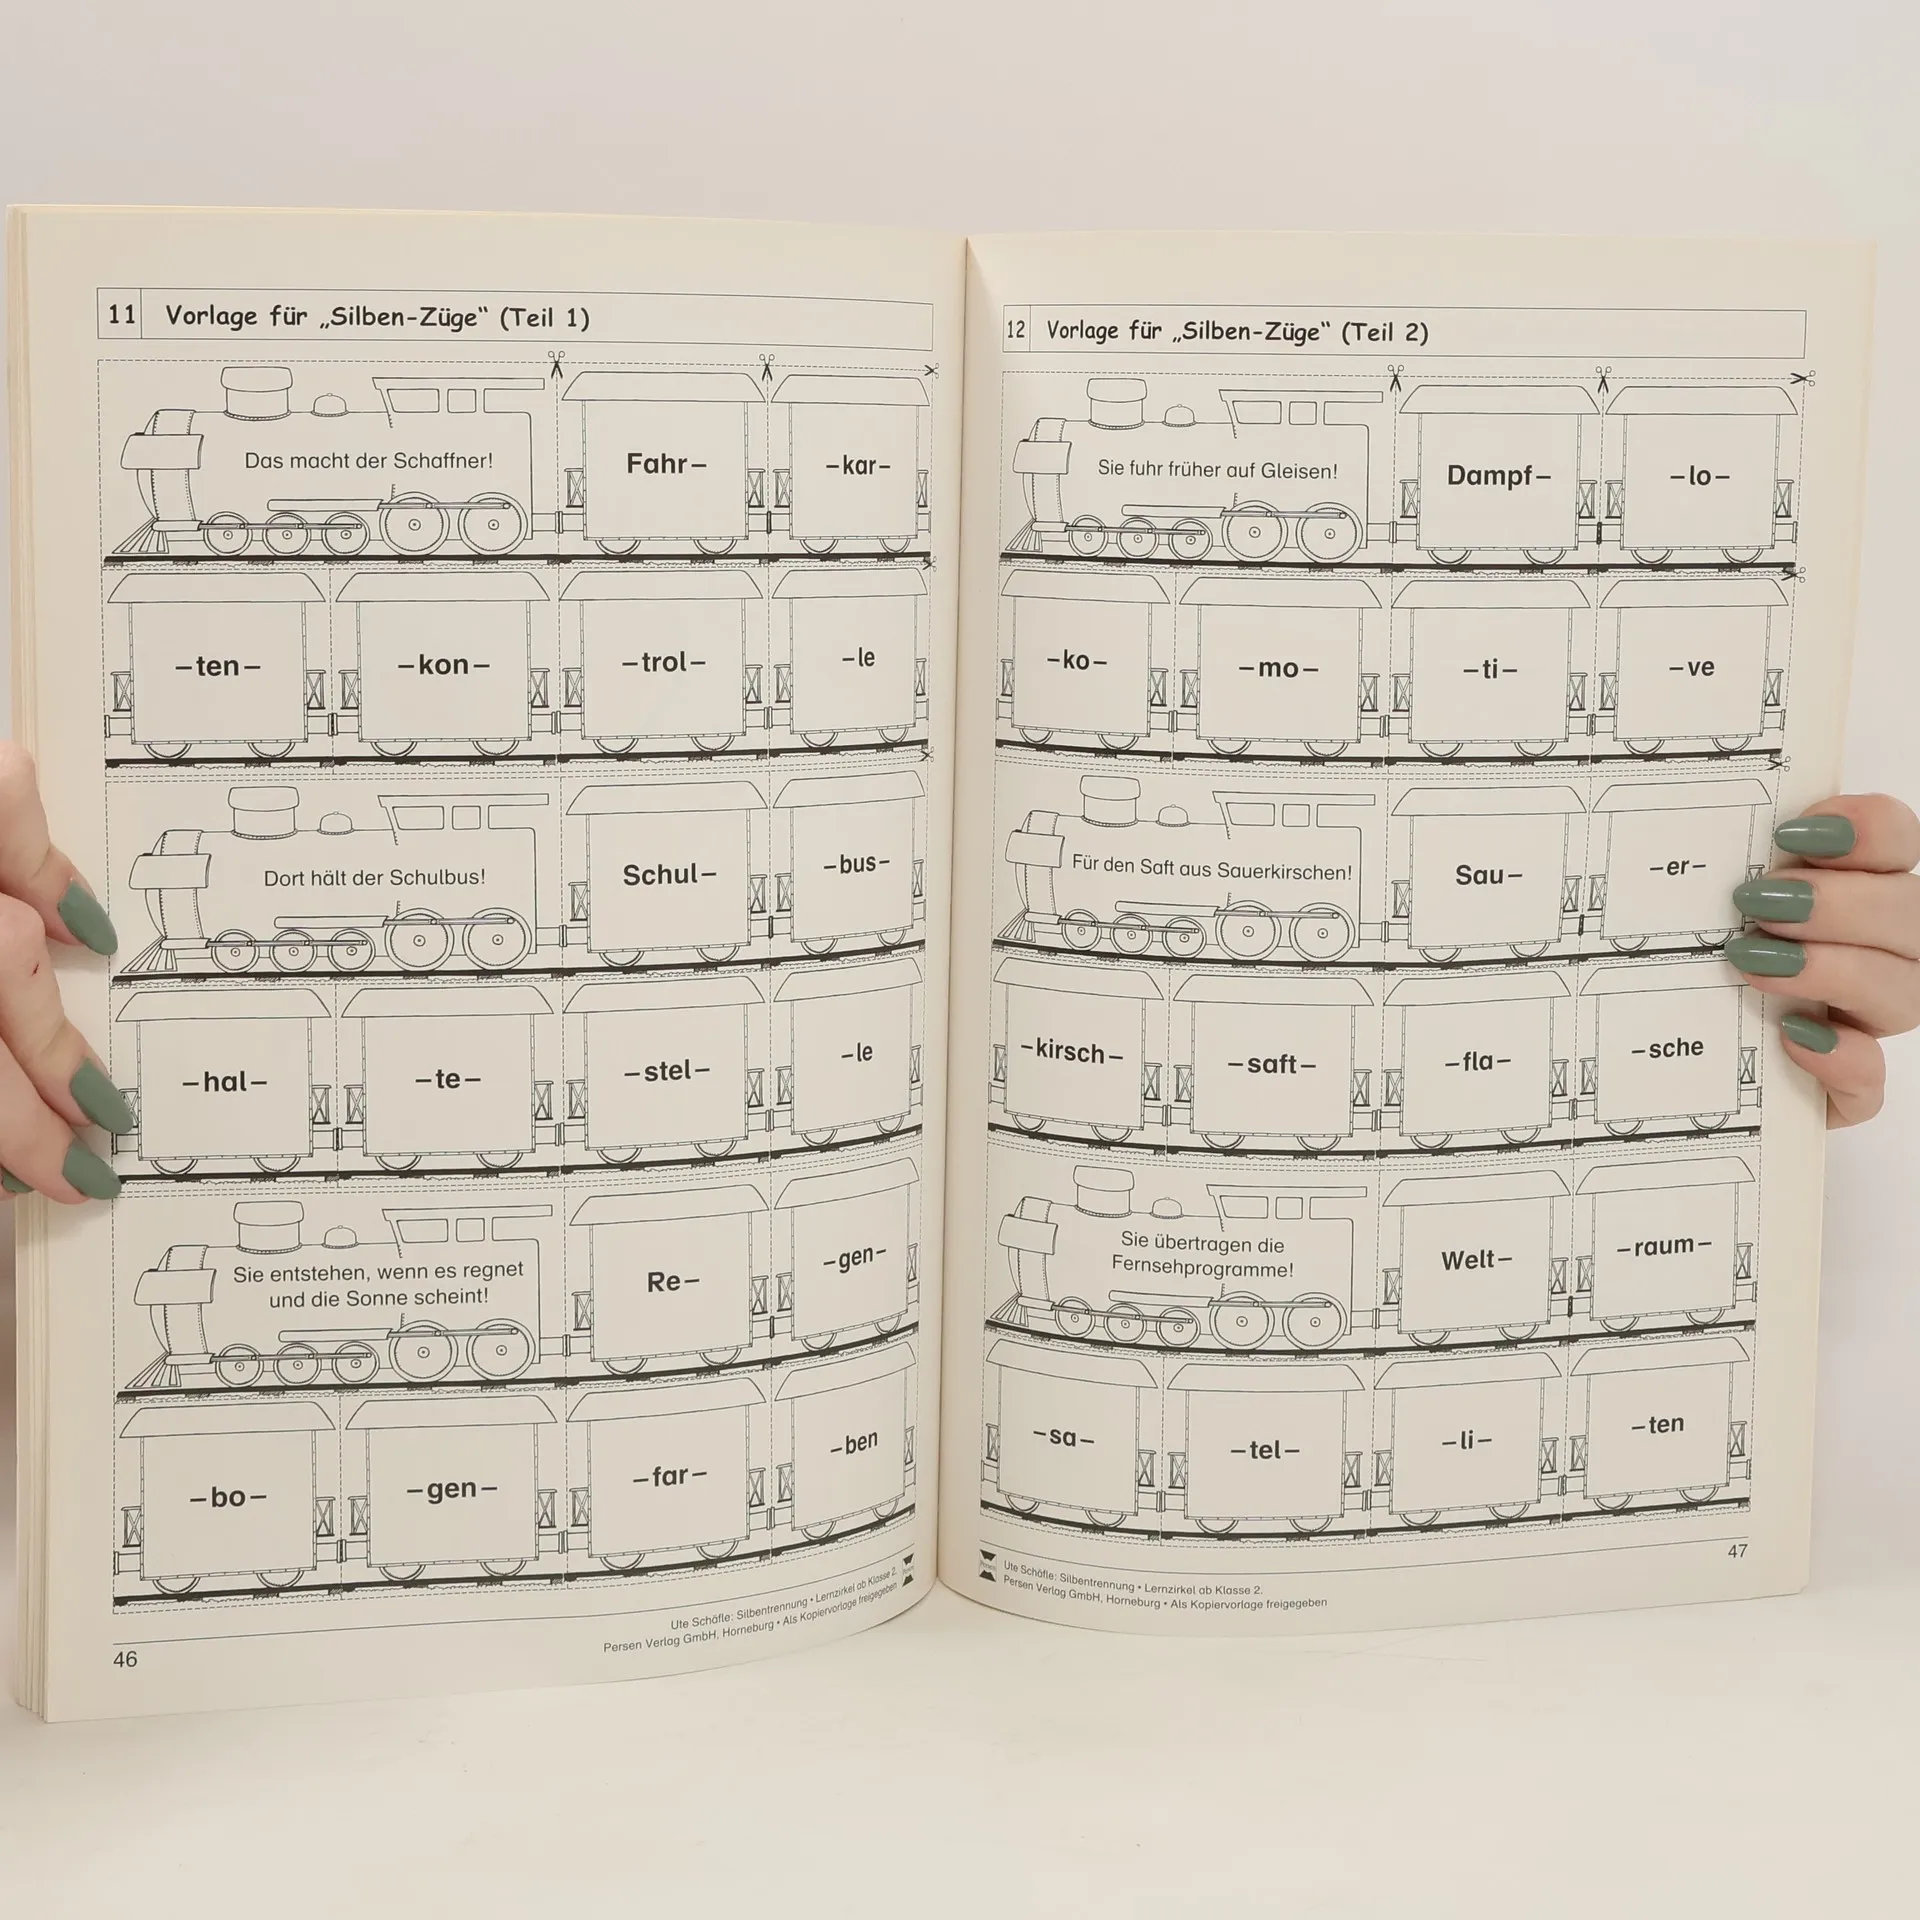 11 Vorlage für „Silben-Züge“ (Teil 1)
Das macht der Schaffner! Fahr– –kar–
–ten– –kon– –trol– –le
Dort hält der Schulbus! Schul– –bus–
–hal– –te– –stel– –le
Sie entstehen, wenn es regnet
und die Sonne scheint!
Re– –gen–
–bo– –gen– –far– –ben
Ute Schäfle: Silbentrennung • Lernzirkel ab Klasse 2.
Persen Verlag GmbH, Horneburg • Als Kopiervorlage freigegeben
Persen
46
12 Vorlage für „Silben-Züge“ (Teil 2)
Sie fuhr früher auf Gleisen! Dampf– –lo–
–ko– –mo– –ti– –ve
Für den Saft aus Sauerkirschen! Sau– –er–
–kirsch– –saft– –fla– –sche
Sie übertragen die
Fernsehprogramme!
Welt– –raum–
–sa– –tel– –li– –ten
Persen
Ute Schäfle: Silbentrennung • Lernzirkel ab Klasse 2.
Persen Verlag GmbH, Horneburg • Als Kopiervorlage freigegeben
47